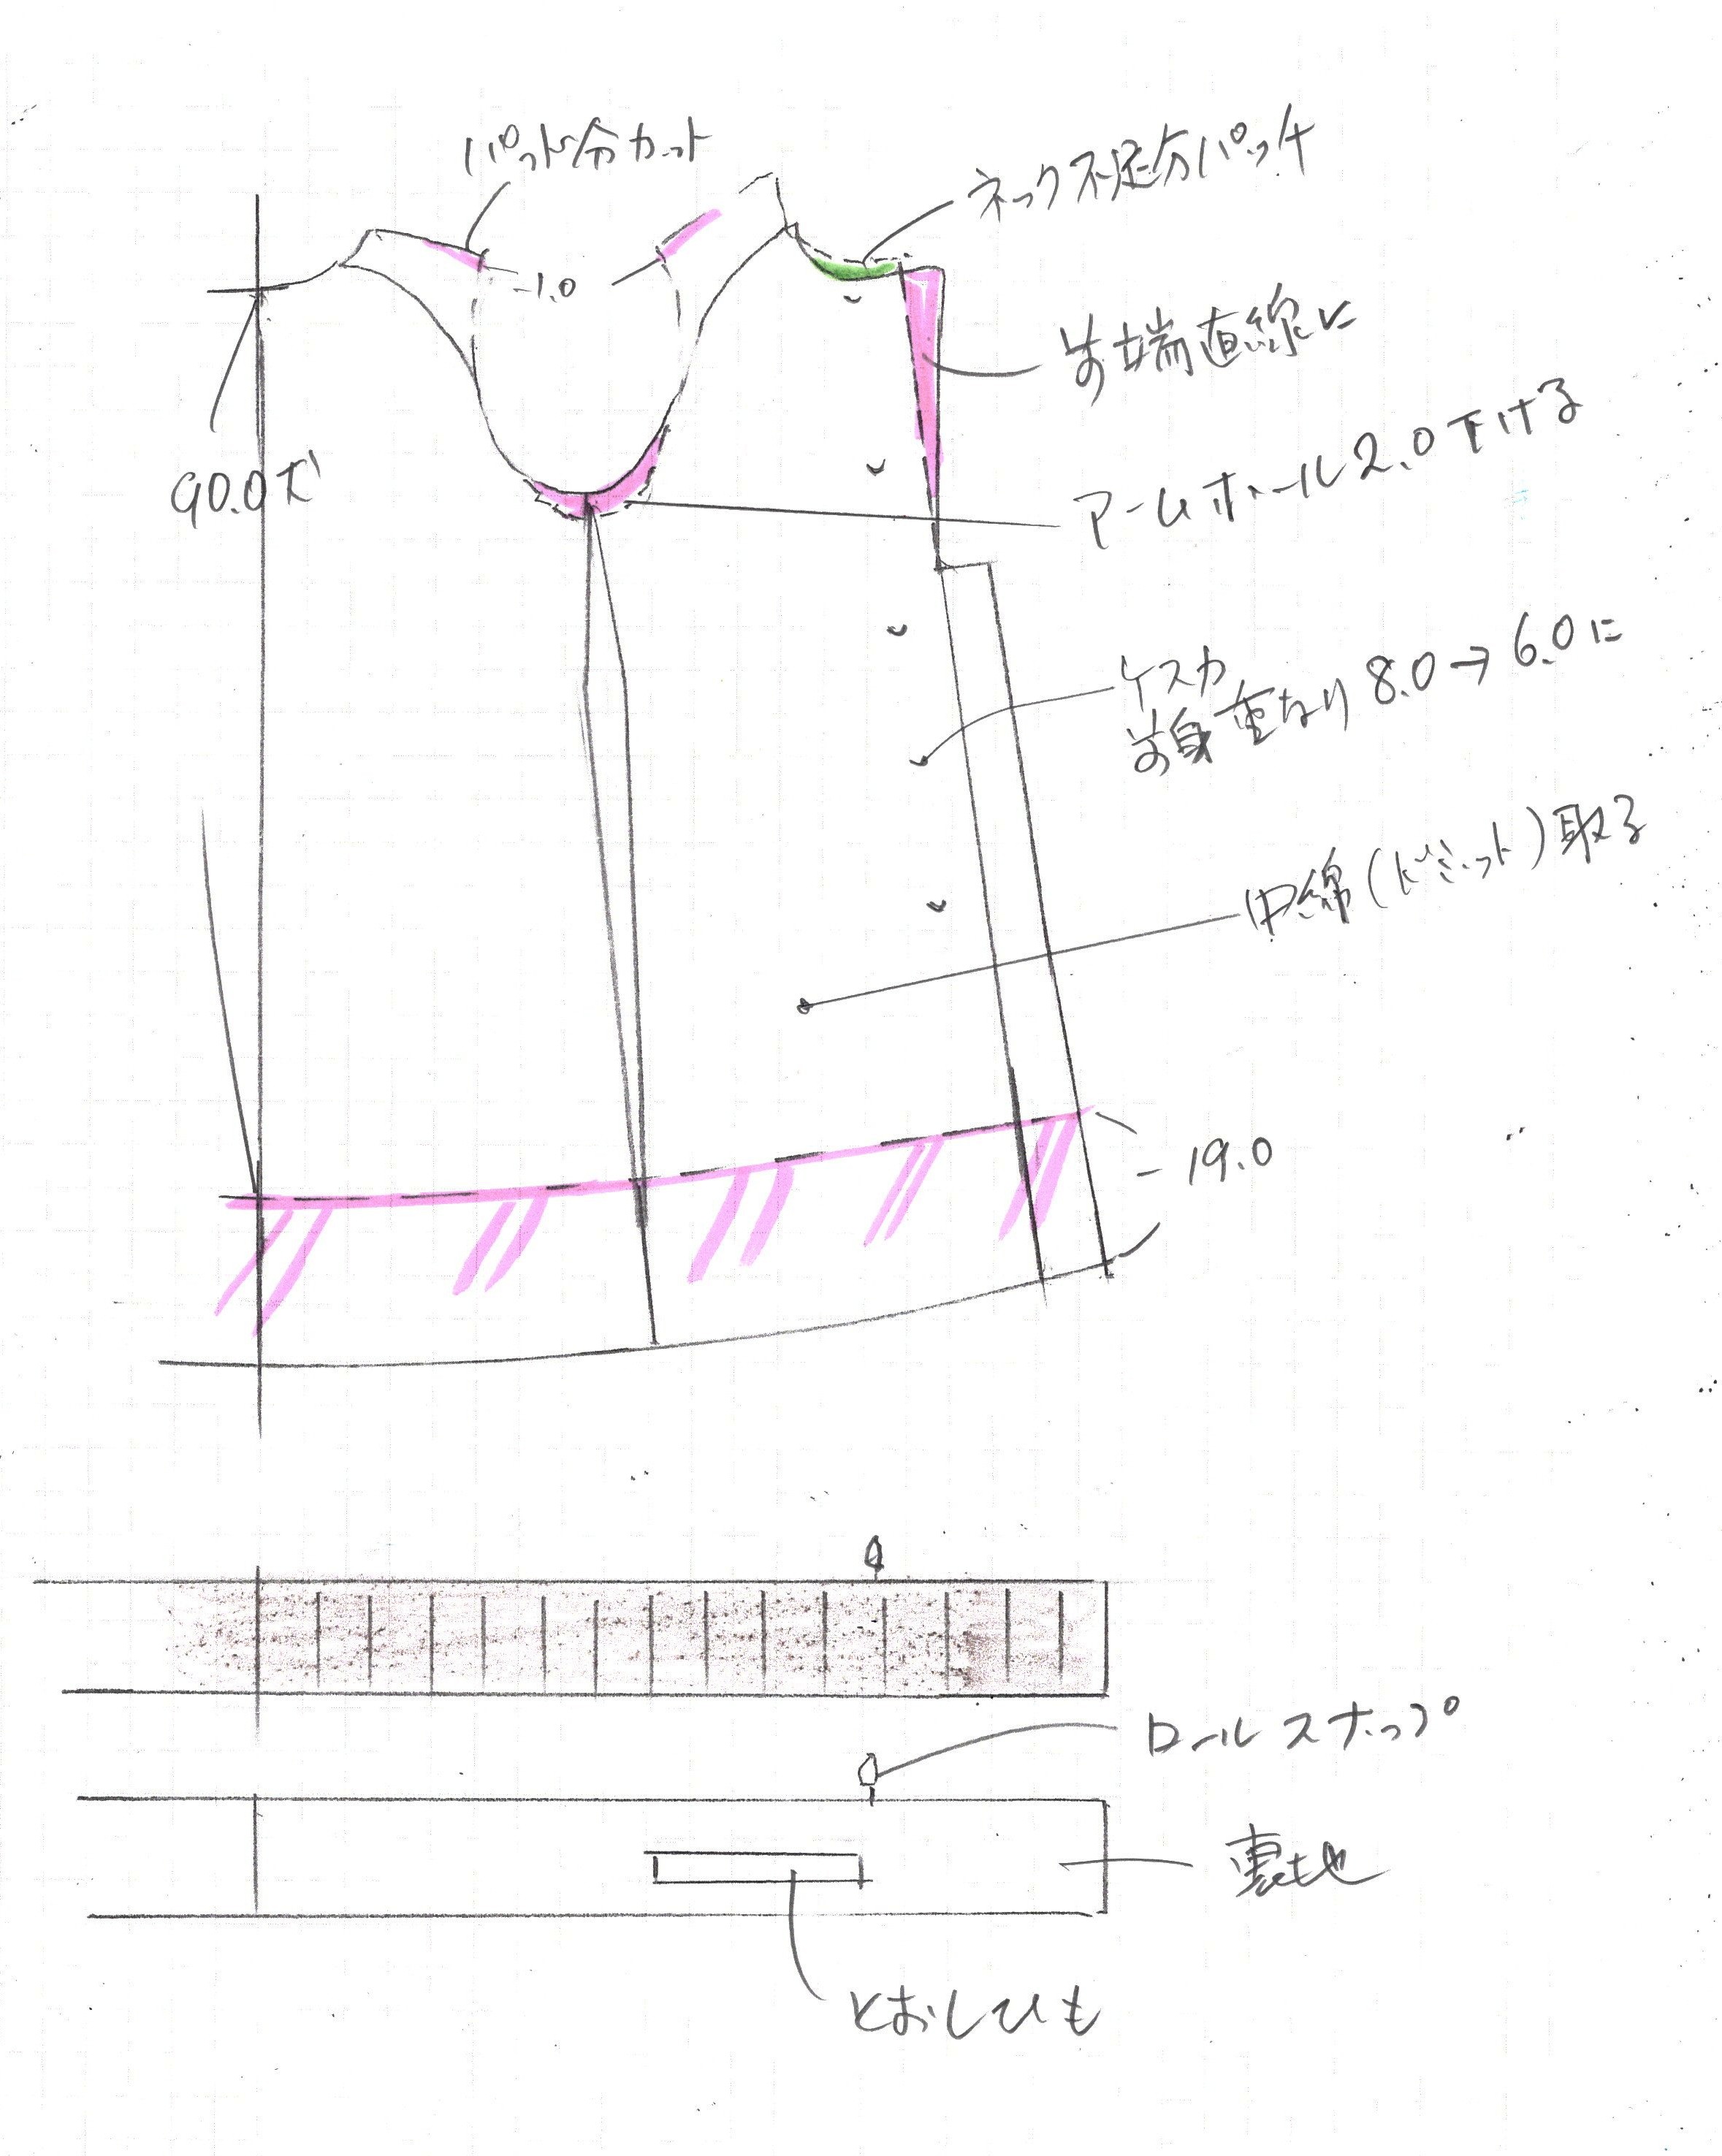 パット分カット
ネック不足分パッチ
-1.0
前端直線に
90.0丈
アームホール2.0下げる
ケスカ
前身重なり 8.0→6.0に
中綿(ドミット)取る
-19.0
ロールスナップ
裏地
とおしひも